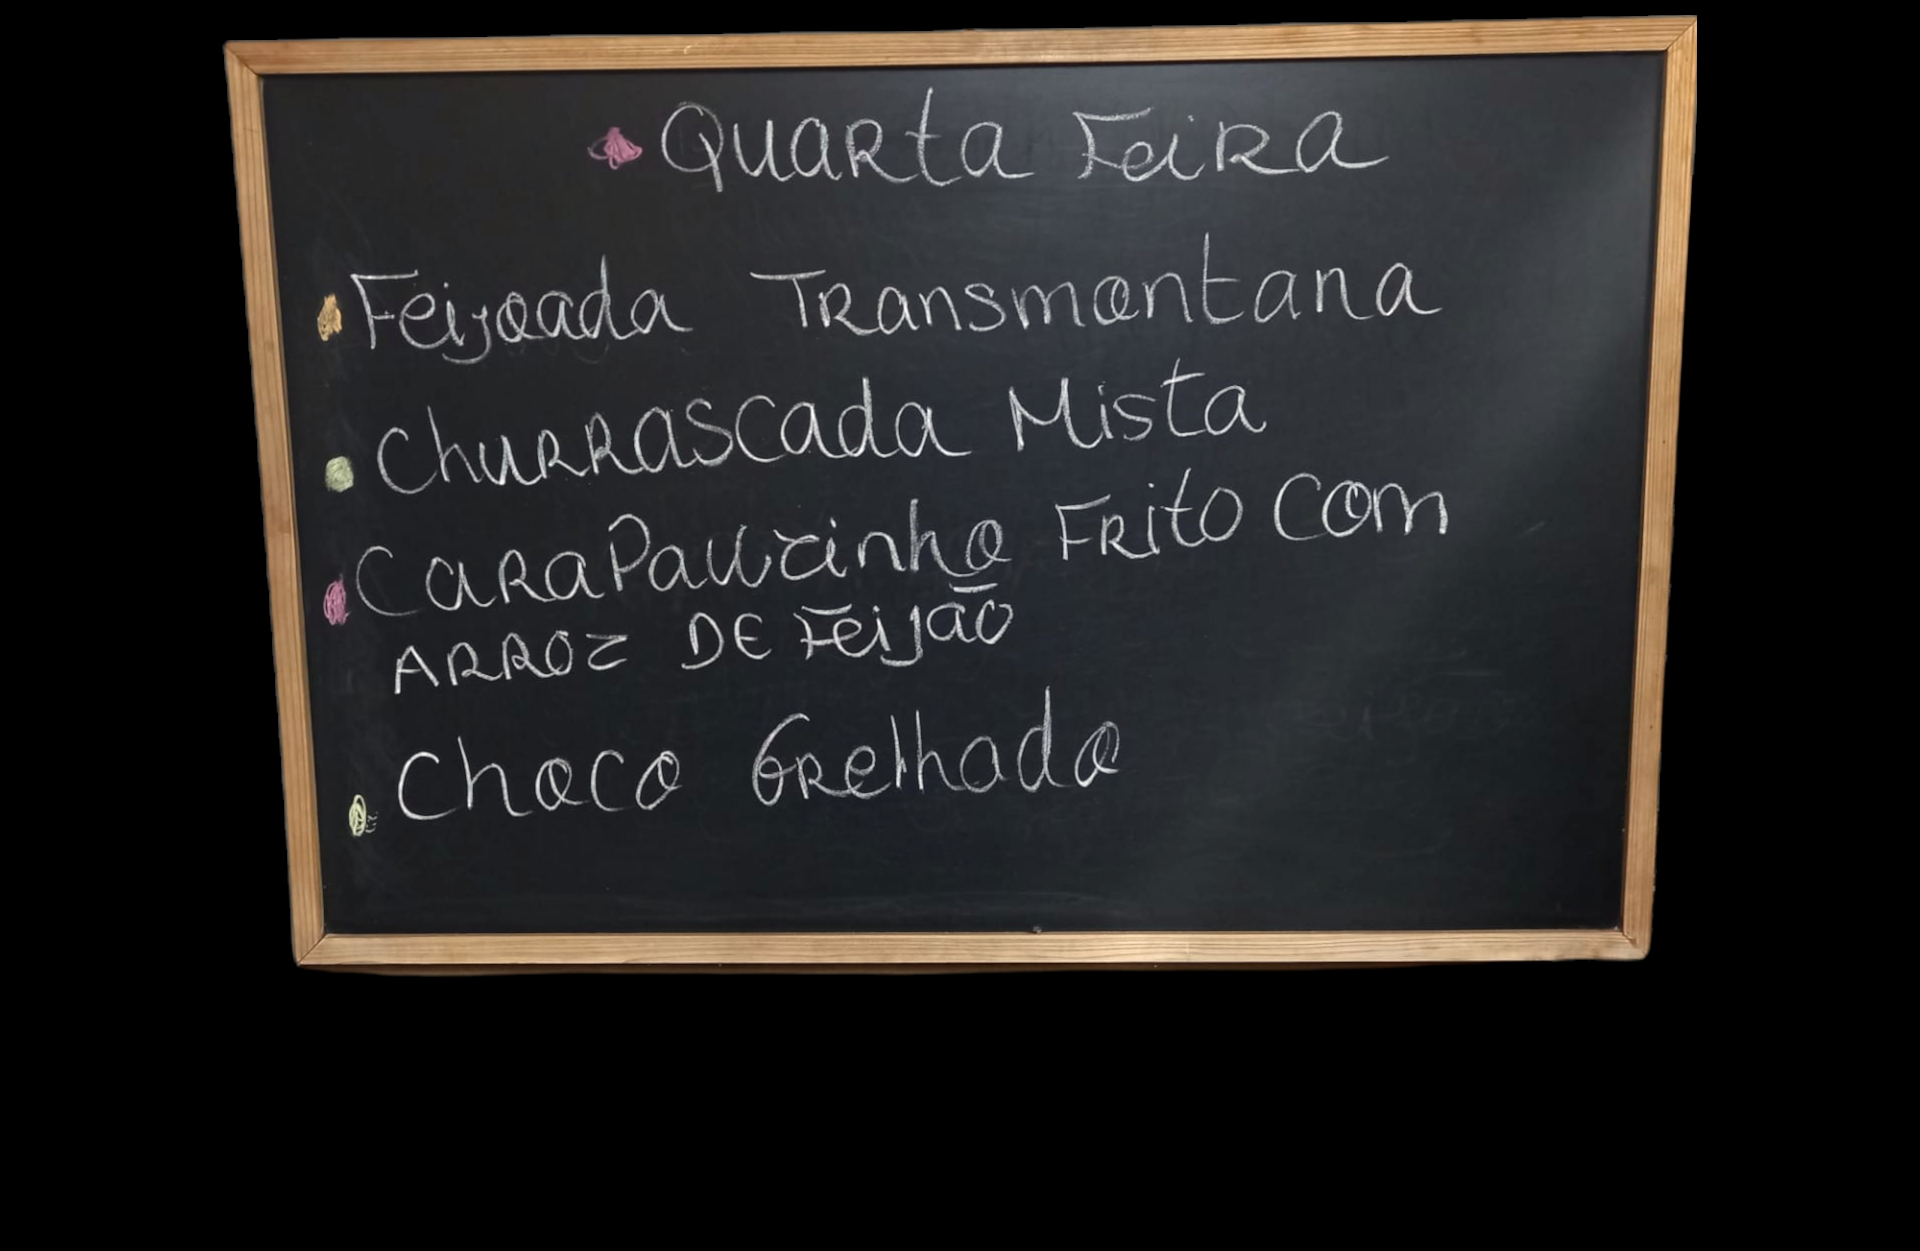 Quarta Feira
Feijoada Transmontana
Churrascada Mista
Carapauzinho Frito com
ARROZ DE Feijão
Choco Grelhado